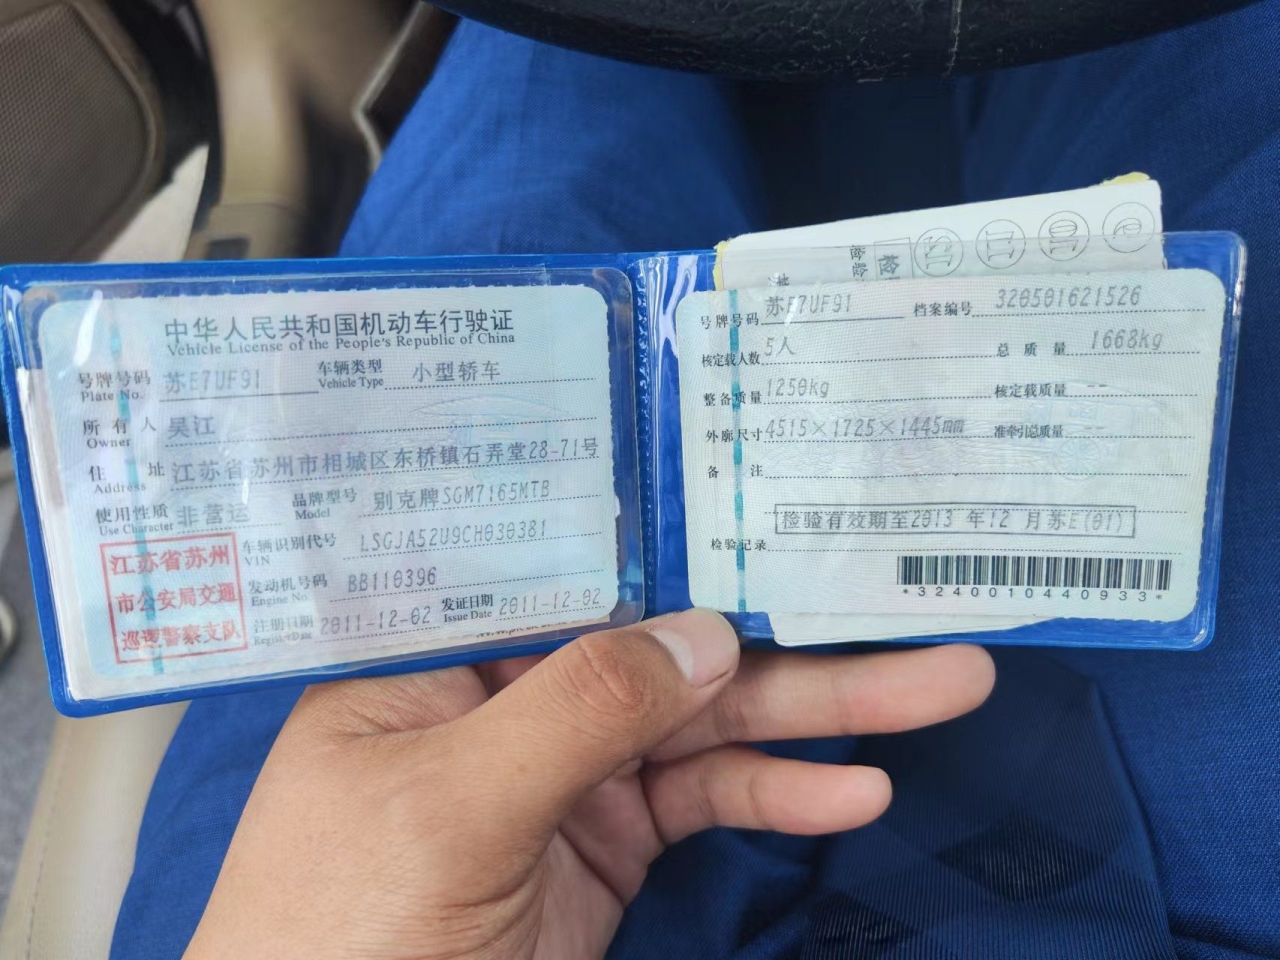 中华人民共和国机动车行驶证
Vehicle License of the People's Republic of China
号牌号码 苏E7UF91 车辆类型 小型轿车
Plate No. Vehicle Type
所有人 吴江
Owner
住址 江苏省苏州市相城区东桥镇石弄堂28-71号
Address
使用性质 非营运 品牌型号 别克牌SGM7165MTB
Use Character Model
江苏省苏州
市公安局交通
巡逻警察支队
车辆识别代号 LSGJA52U9CH030381
VIN
发动机号码 BB110396
Engine No.
注册日期 2011-12-02 发证日期 2011-12-02
Register Date Issue Date
号牌号码 苏E7UF91 档案编号 320501621526
核定载人数 5人 总质量 1668kg
整备质量 1250kg 核定载质量 --
外廓尺寸 4515×1725×1445mm 准牵引总质量 --
备注
检验有效期至2013 年12 月苏E(01)
检验记录
*3240010440933*